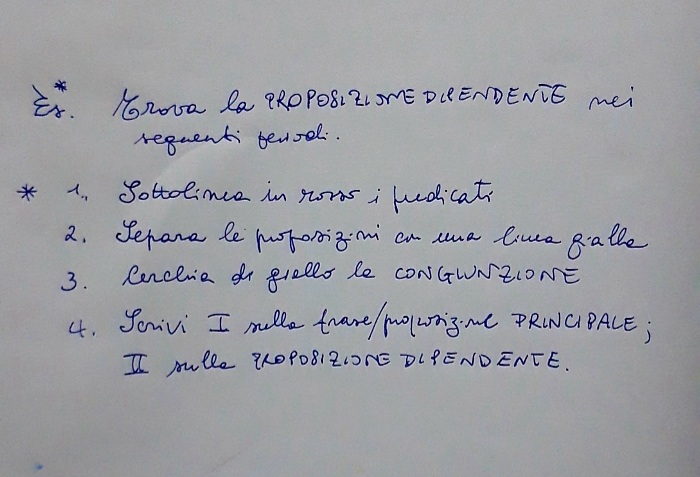 Es.* Trova la PROPOSIZIONE DIPENDENTE nei
seguenti periodi.
* 1. Sottolinea in rosso i predicati
2. Separa le proposizioni con una linea gialla
3. Cerchia di giallo la CONGIUNZIONE
4. Scrivi I sulla frase/proposizione PRINCIPALE;
II sulla PROPOSIZIONE DIPENDENTE.